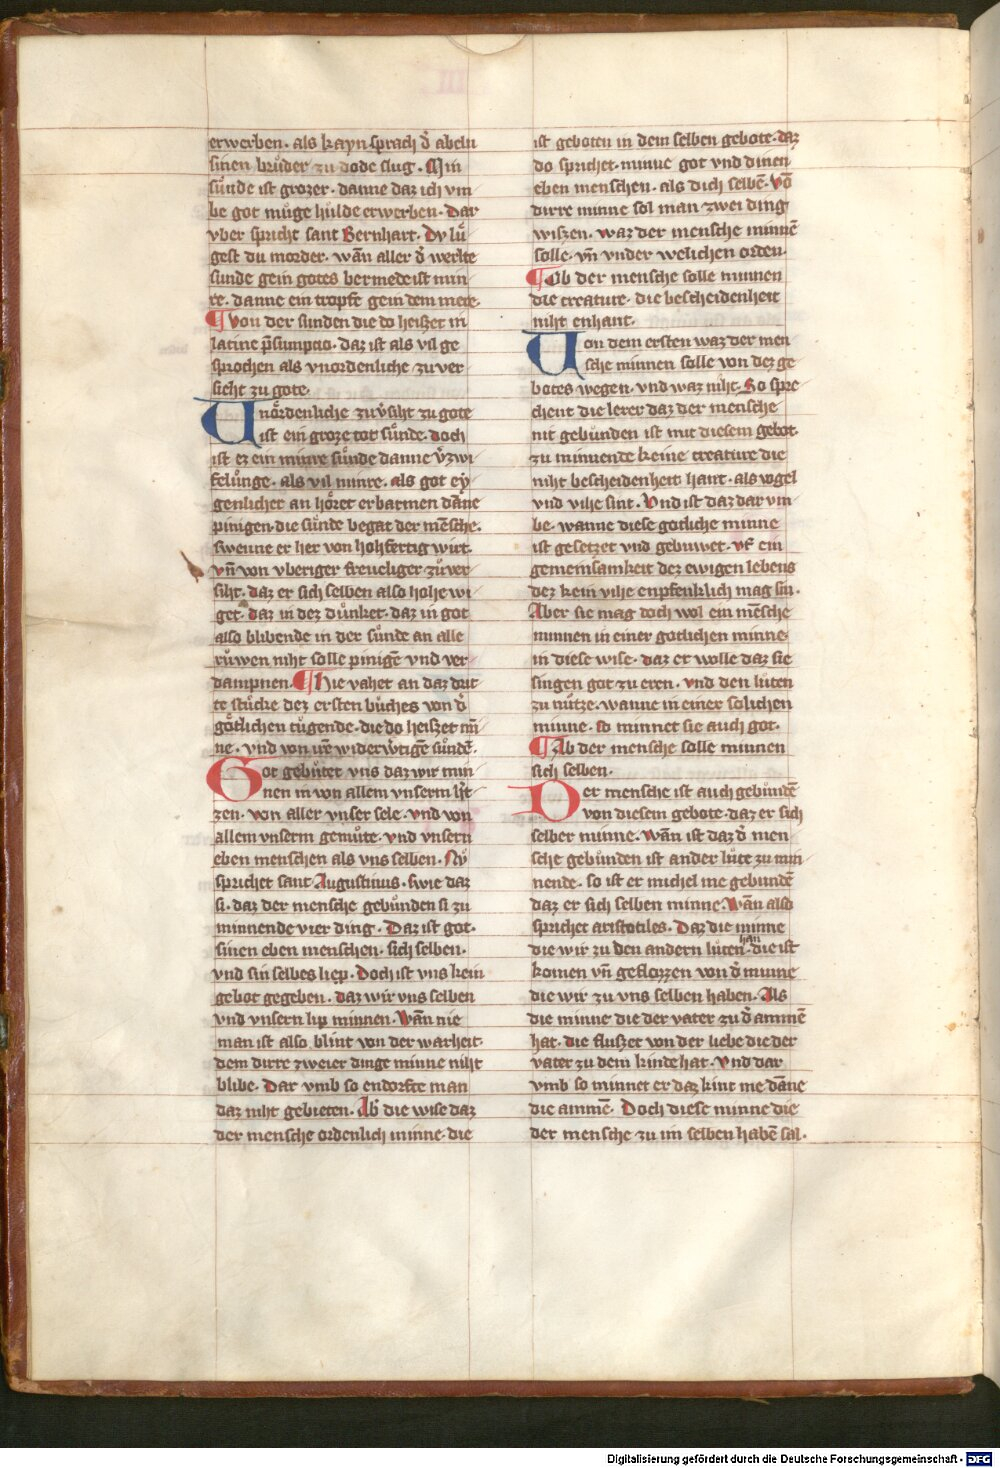 erwerben · als kayn sprach d̉ abeln
sinen bruͦder zu dode slug · Min
suͤnde ist grozer · danne daz ich vm
be got muͤge huͤlde erwerben · Dar
vber spricht sant Bernhart · Dv luͤ
gest du morder · wān aller d̉ werlte
sunde gein gotes bermede ist min
re · danne ein tropfe gein dem mere ·
¶ Von der sunden die do heiszet in
latine p̄sumptio · daz ist als vil ge
sprochen als vnordenliche zu ver
sicht zu gote
Unoͤrdenliche zuv̉siht zu gote
ist ein groze tot suͤnde · doch
ist ez ein minre suͤnde danne v̉zwi
feluͤnge · als vil minre · als got ey
genlicher an hoͤret erbarmen dāne
pinigen · die suͤnde begat der mēsche ·
swenne er her von hohfertig wirt ·
vn̄ von vberiger freueliger zuͦver
siht · daz er sich selben also hohe wi
get · daz in dez duͤnket · daz in got
also blibende in der suͤnde an alle
ruͤwen niht solle pinigē vnd ver
dampnen · ¶ Hie vahet an daz drit
te stuͤcke dez ersten buͤches von d̉
goͤtlichen tuͤgende · die do heiszet mī
ne · vnd von ire widerw̉tigē suͤndē ·
Got gebuͤtet vns daz wir min
nen in von allem vnserm h̉t
zen · von aller vnser sele · vnd von
allem vnserm gemuͤte · vnd vnsern
eben menschen als vns selben · Nuͦ
sprichet sant Augustinus · swie daz
si · daz der mensche gebuͤnden si zu
minnende vier ding · Daz ist got ·
sinen eben menschen · sich selben ·
vnd sin selbes liep · Doch ist vns kein
gebot gegeben · daz wir vns selben
vnd vnsern lip minnen · Wān nie
man ist also blint von der warheit ·
dem dirre zweier dinge minne niht
blibe · Dar vmb so endorfte man
daz niht gebieten · Ab̉ die wise daz
der mensche ordenlich minne · die
ist geboten in dem selben gebote · daz
do sprichet · minne got vnd dinen
eben menschen · als dich selbē · Vō
dirre minne sol man zwei ding
wiszen · waz der mensche minnē
solle · vn̄ vnder welichen orden ·
¶ Ob der mensche solle minnen
die creature · die bescheidenheit
niht enhant ·
Von dem ersten waz der men
sche minnen solle von dez ge
botes wegen · vnd waz niht · So spre
chent die lerer daz der mensche
nit gebunden ist mit diesem gebot ·
zu minnende keine creature die
niht bescheidenheit hant · als vogel
vnd vihe sint · Vnd ist daz dar vm
be · wanne diese gotliche minne
ist gesetzet vnd gebuwet · vf ein
gemeinsamkeit dez ewigen lebens
dez kein vihe enpfenklich mag sin ·
Aber sie mag doch wol ein mēsche
minnen in einer gotlichen minne ·
in diese wise · daz er wolle daz sie
singen got zu eren · vnd den luͤten
zu nuͤtze · wanne in einer solichen
minne · so minnet sie auch got ·
¶ Ab der mensche solle minnen
sich selben ·
Der mensche ist auch gebundē
von diesem gebote · daz er sich
selber minne · Wān ist daz d̉ men
sche gebuͤnden ist ander luͤte zu min
nende · so ist er michel me gebundē
daz er sich selben minne · Wān also
sprichet aristotiles · Daz die minne
die wir zu den andern luͤten han · die ist
komen vn̄ geflozzen von d̉ minne
die wir zu vns selben haben · Als
die minne die der vater zu d̉ ammē
hat · die fluszet von der liebe die der
vater zu dem kinde hat · Vnd dar
vmb so minnet er daz kint me dāne
die ammē · Doch diese minne die
der mensche zu im selben habē sal ·
Digitalisierung gefördert durch die Deutsche Forschungsgemeinschaft - DFG